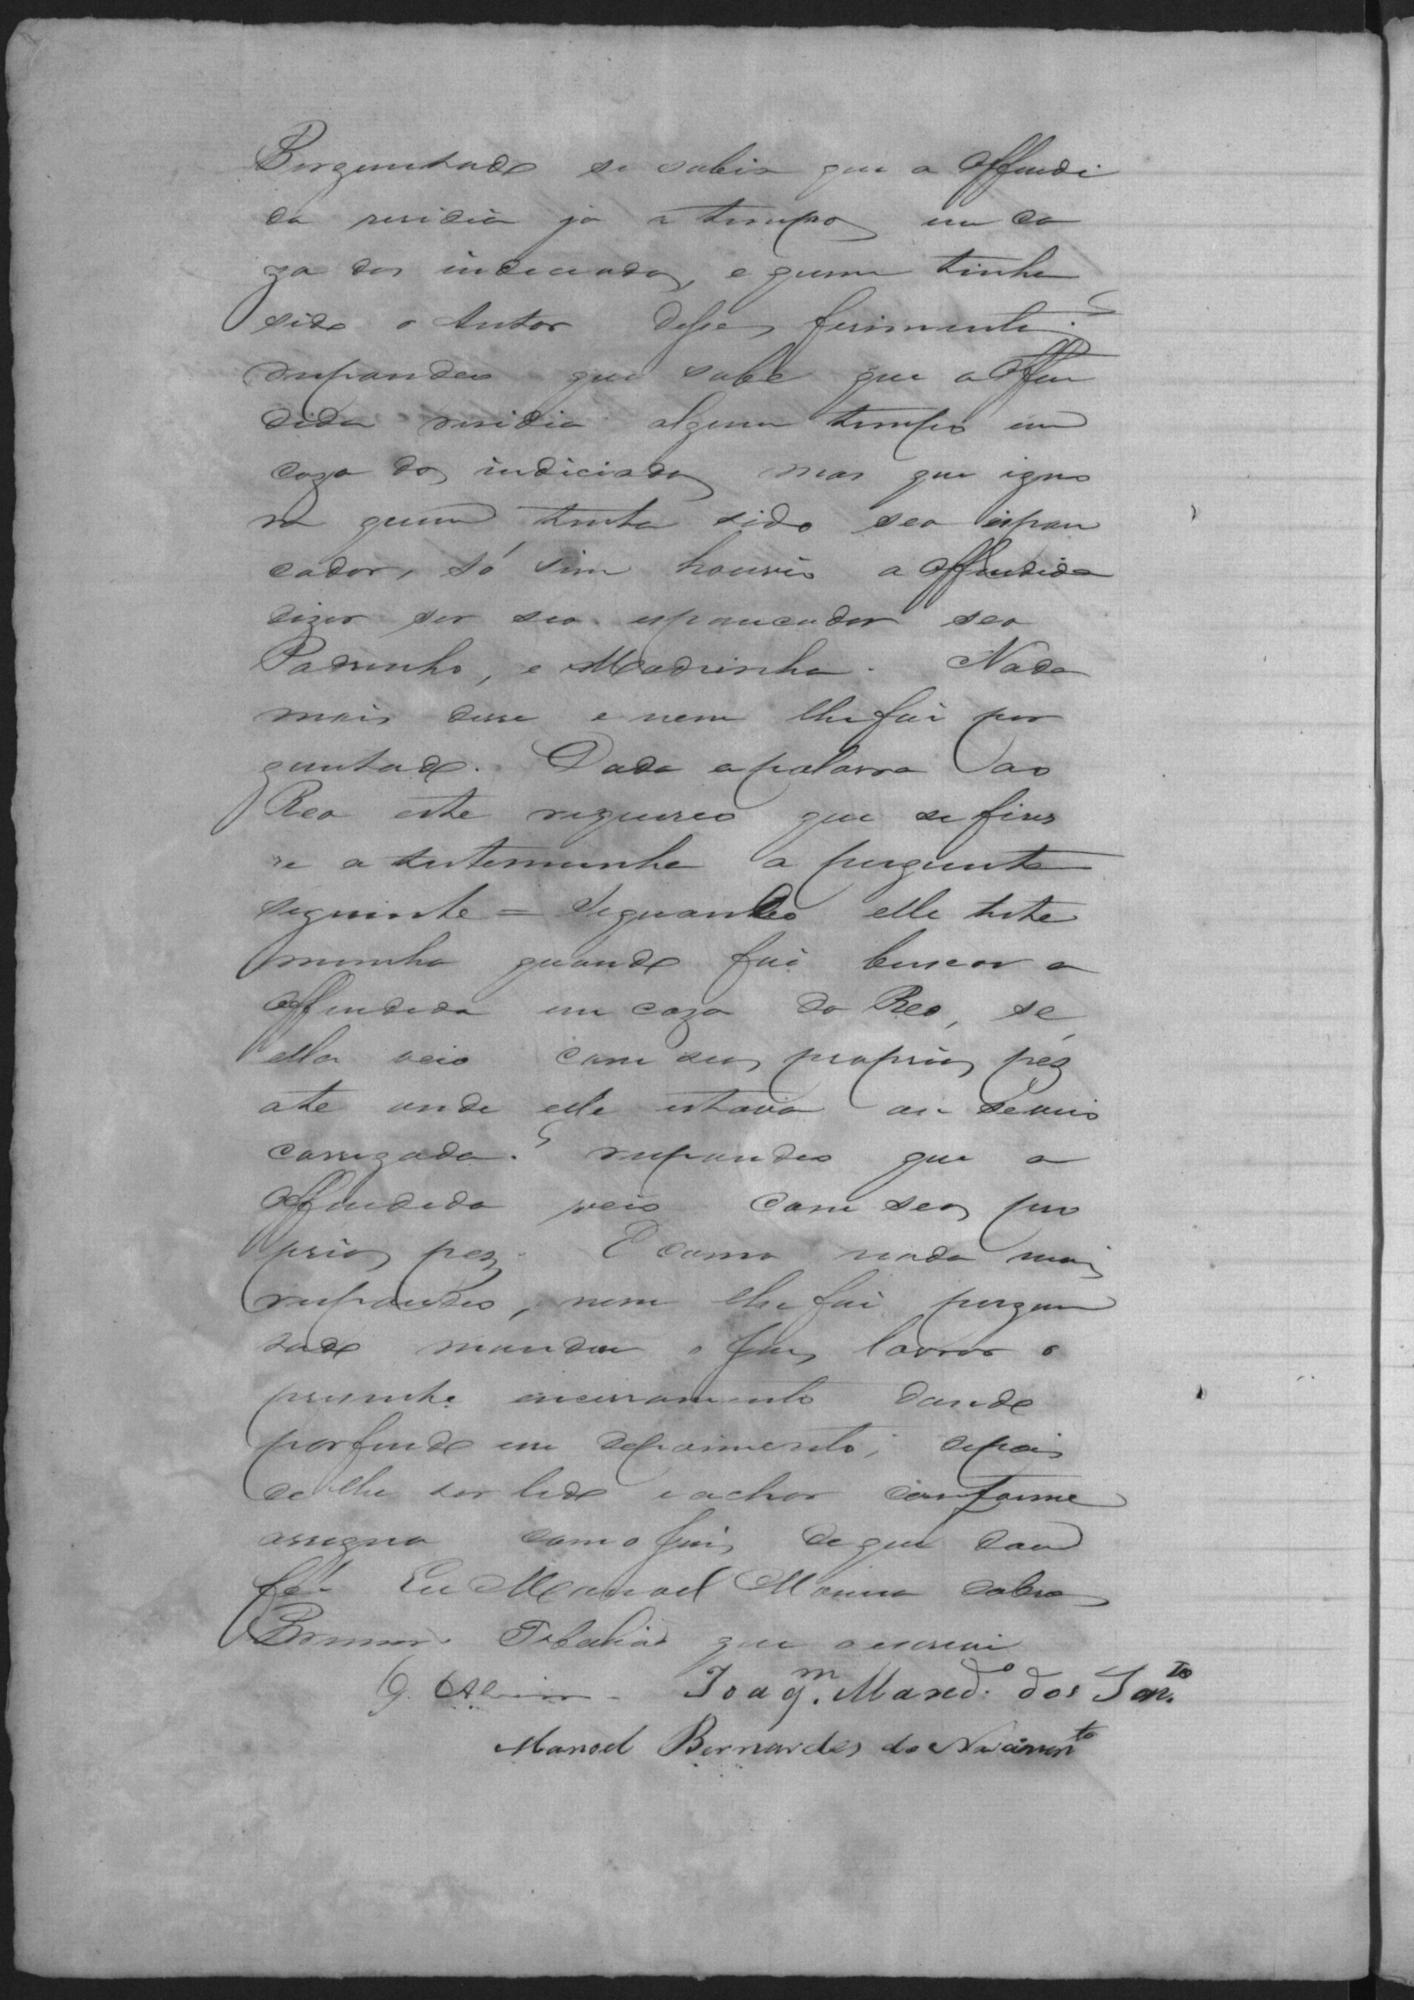 Perguntado se sabia que a offendi
da residia ja a tempos em ca
za dos indiciados, e quem tinha
sido o Autor desses ferimentos?
respondeu que sabe que a offen
dida residia algum tempo em
caza dos indiciados mas que igno
ra quem tinha sido seo espan
cador, só sim houvio a offendida
dizer ser seo espancador seo
Padrinho, e Madrinha. Nada
mais disse e nem lhe foi per
guntado. Dada a palavra ao
Reo este requereo que se fizes
se a testemunha a pergunta
seguinte = Segundo elle teste
munha quando foi buscar a
offendida em caza do Reo, se
ella veio com seus proprios pez
ate onde elle estava ou se veio
carregada? respondeo que a
offendida veio com seos pro
prios pez. E como nada mais
respondeo, nem lhe foi pergun
tado mandou o Juiz lavrar o
presente encerramento dando
por findo em depoimento; depois
de lhe ser lido e achar conforme
assigna com o Juiz de que dou
fé. Eu Manoel Maria
Tabalião que o escrevi
Joaqm. Maxdo. dos Santos
Manoel Bernardes do Nascimento